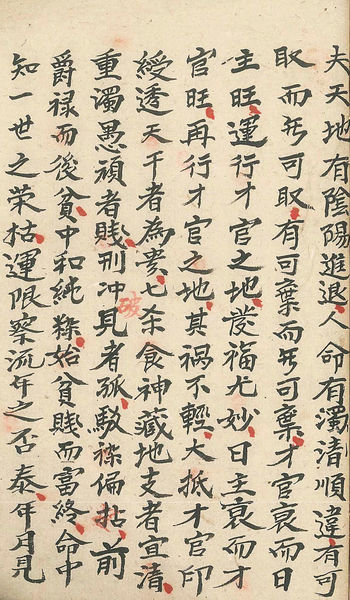 夫天地有陰陽進退人命有濁清順違有可
取而无可取有可棄而无可棄才官衰而日
主旺運行才官之地發福尤妙日主衰而才
官旺再行才官之地其禍不輕大抵才官印
綬透天干者為豪七杀食神藏地支者宜清
重濁愚頑者賤刑冲見者孤駁雜偏枯前
破
爵禄而後貧中和純粹始貧賤而富終命中
知一世之荣枯運限察流年之否泰年月見